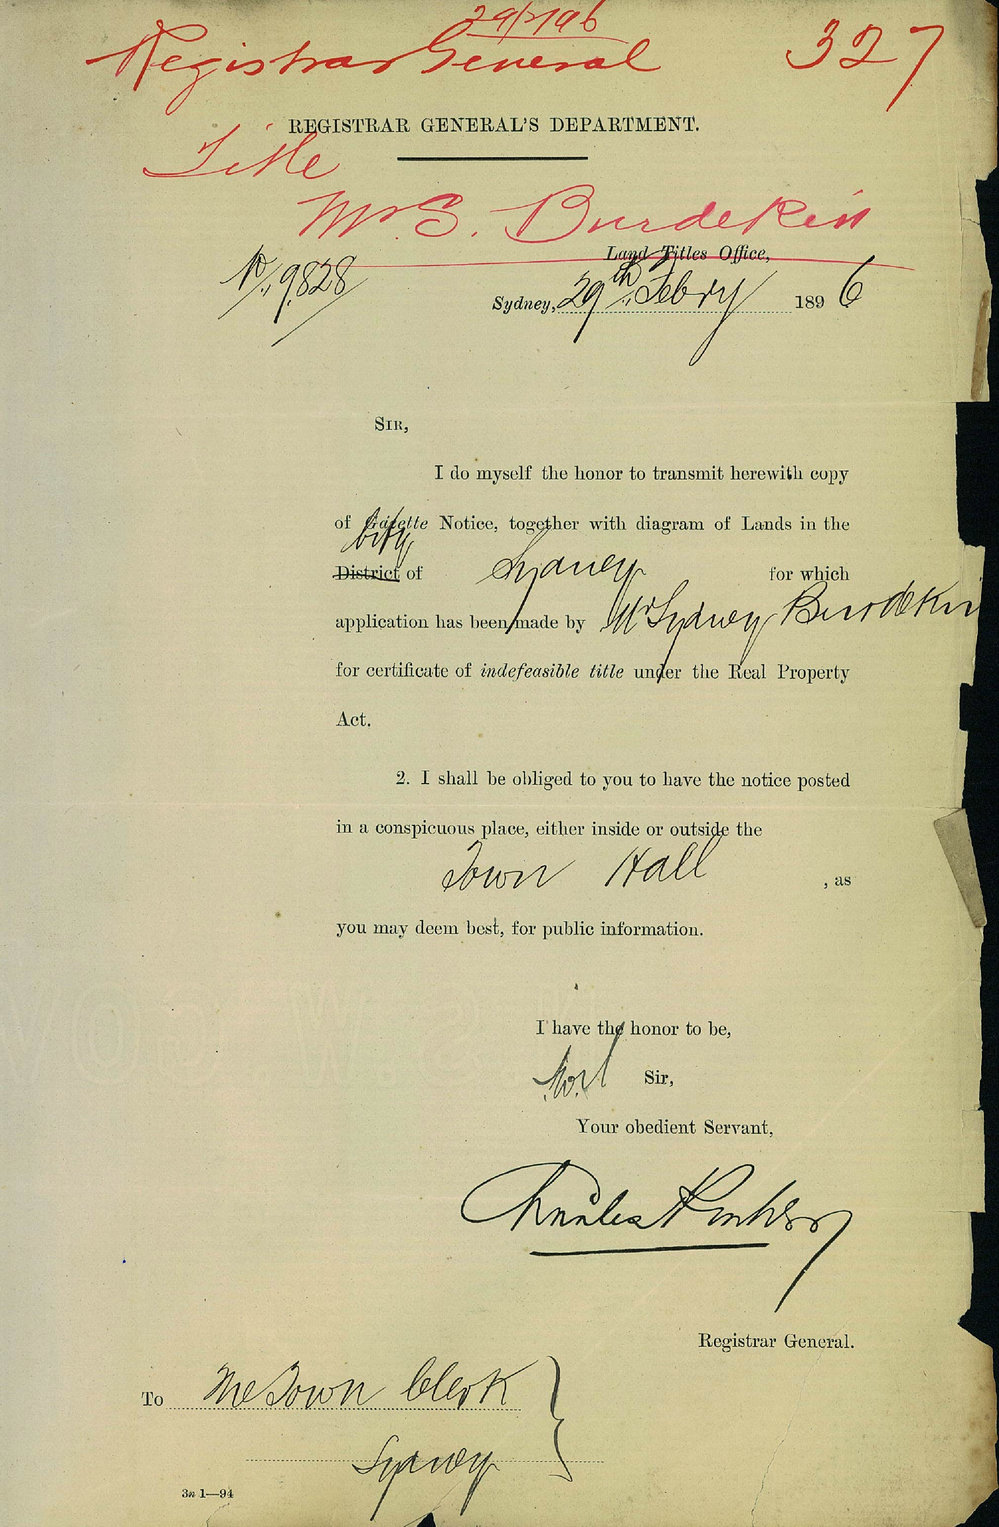 29/2/96
Registrar General 327
REGISTRAR GENERAL'S DEPARTMENT.
Title
Mr S. Burdekin
Land Titles Office,
No., 9828
Sydney, 29th Febry 1896
SIR,
I do myself the honor to transmit herewith copy
of Gazette Notice, together with diagram of Lands in the
City
District of Sydney for which
application has been made by Mr Sydney Burdekin
for certificate of indefeasible title under the Real Property
Act.
2. I shall be obliged to you to have the notice posted
in a conspicuous place, either inside or outside the
Town Hall , as
you may deem best, for public information.
I have the honor to be,
Sir,
Your obedient Servant,
Charles
Registrar General.
To The Town Clerk
Sydney
3n 1—94